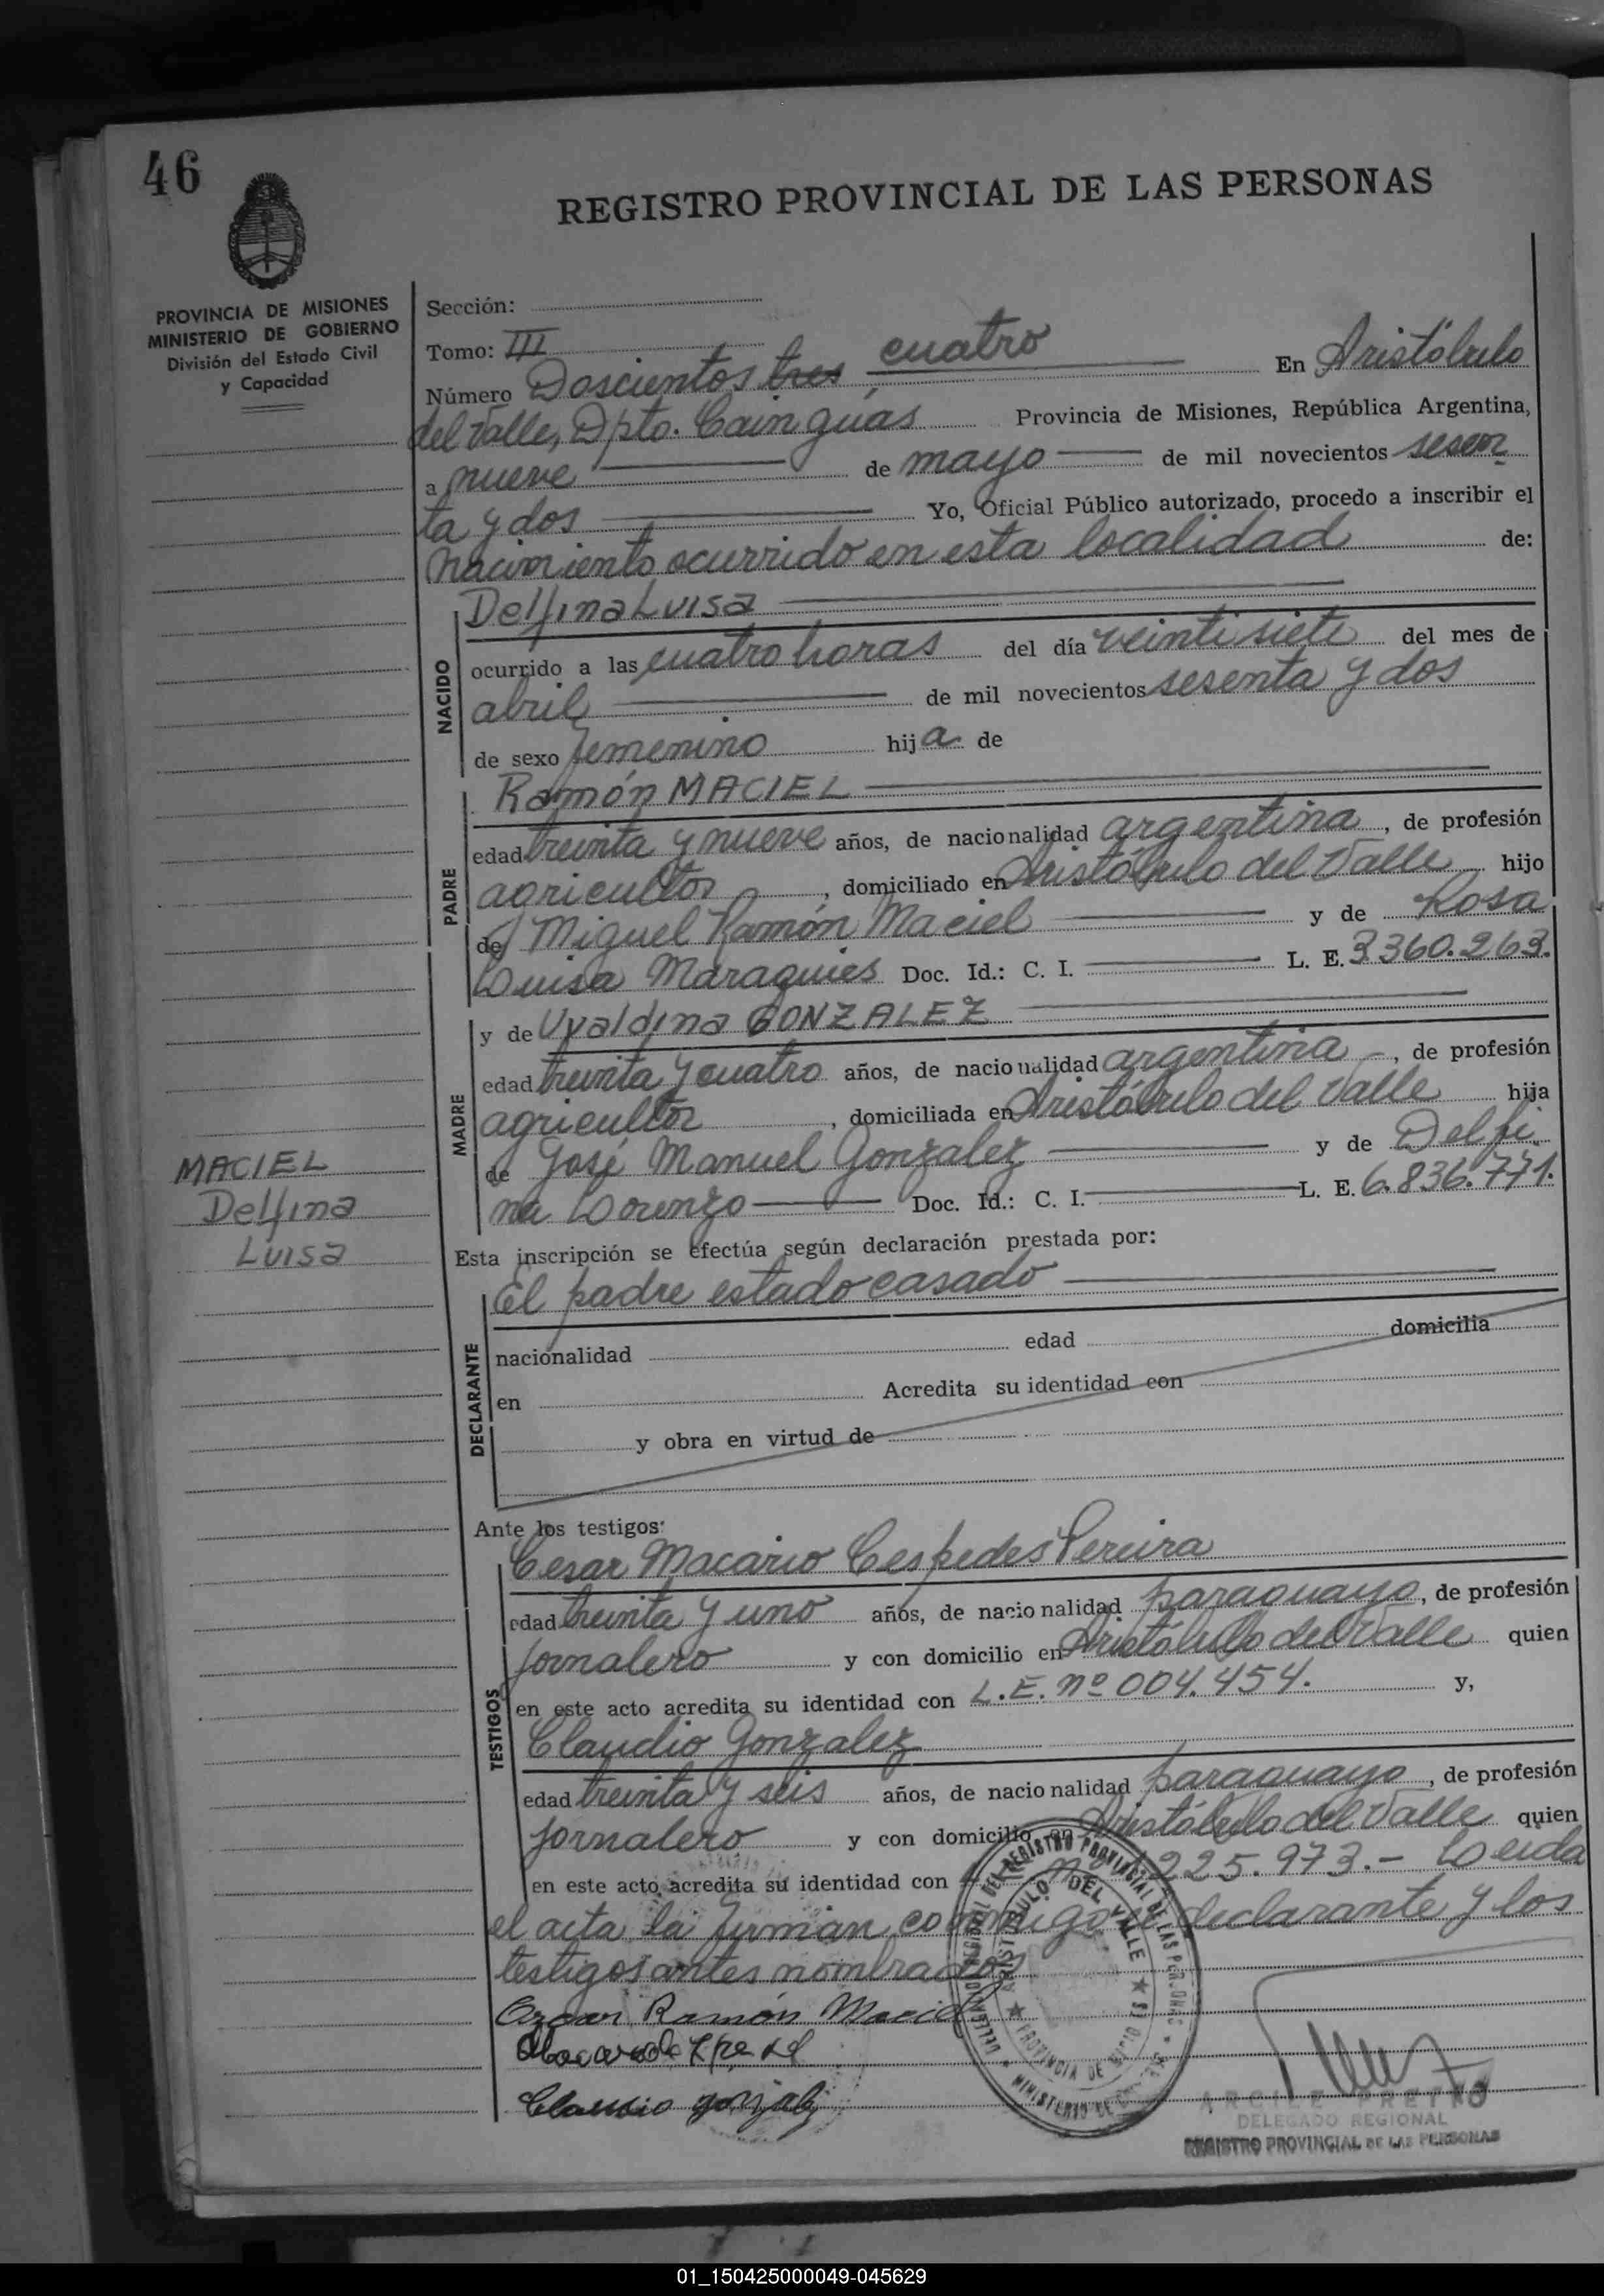 46
REGISTRO PROVINCIAL DE LAS PERSONAS
PROVINCIA DE MISIONES
MINISTERIO DE GOBIERNO
División del Estado Civil
y Capacidad
Sección:
Tomo: III
Número Doscientos tres, cuatro En Aristóbulo
del Valle, Dpto. Cainguás Provincia de Misiones, República Argentina,
a nueve de mayo de mil novecientos sesen
ta y dos Yo, Oficial Público autorizado, procedo a inscribir el
nacimiento ocurrido en esta localidad de:
NACIDO
Delfina Luisa
ocurrido a las cuatro horas del día veintisiete del mes de
abril de mil novecientos sesenta y dos
de sexo femenino hija de
PADRE
Ramón MACIEL
edad treinta y nueve años, de nacionalidad argentina, de profesión
agricultor, domiciliado en Aristóbulo del Valle hijo
de Miguel Ramón Maciel y de Rosa
Luisa Maraquies Doc. Id.: C. I. L. E. 3.360.263.
MADRE
y de Uvaldina GONZALEZ
edad treinta y cuatro años, de nacionalidad argentina -, de profesión
agricultor, domiciliada en Aristóbulo del Valle hija
de José Manuel Gonzalez y de Delfi
na Lorenzo Doc. Id.: C. I. L. E. 6.836.771.
MACIEL
Delfina
Luisa
Esta inscripción se efectúa según declaración prestada por:
DECLARANTE
El padre estado casado
nacionalidad edad domicilia
en Acredita su identidad con
y obra en virtud de
Ante los testigos:
TESTIGOS
Cesar Macario Cespedes Pereira
edad treinta y uno años, de nacionalidad paraguayo, de profesión
jornalero y con domicilio en Aristóbulo del Valle quien
en este acto acredita su identidad con L.E. nº 004.454. y,
Claudio Gonzalez
edad treinta y seis años, de nacionalidad paraguayo, de profesión
jornalero y con domicilio en Aristóbulo del Valle quien
en este acto acredita su identidad con 225.973.- Leida
el acta la firman conmigo el declarante y los
testigos antes nombrados
Ramón Maciel
Claudio gonzalez
DELEGACION REGIONAL DEL REGISTRO PROVINCIAL DE LAS PERSONAS
ARISTOBULO DEL VALLE
PROVINCIA DE
MINISTERIO DE
DELEGADO REGIONAL
REGISTRO PROVINCIAL DE LAS PERSONAS
01_150425000049-045629